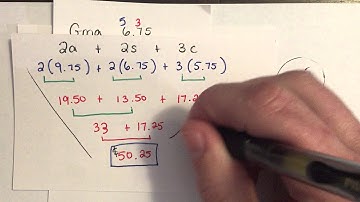 5 3
Gma 6.75
2a + 2s + 3c
2(9.75) + 2(6.75) + 3(5.75)
19.50 + 13.50 + 17.2
33 + 17.25
$50.25